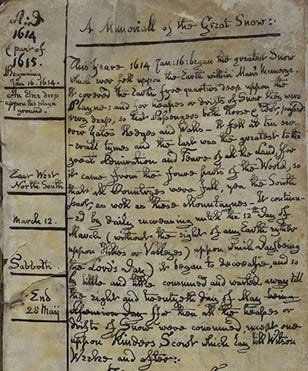 A: D
1614
& part of
1615.
Beginning
Jan 16. 1614.
An Ell deep
upon the playn
ground.
East West
North South
March 12.
Sabboth.
End
28 Maij
A Memoriall of the Great Snow:
This yeare 1614 Jan: 16: began the greatest Snow
which ever fell upon the Earth within Mans Memorye.
It covered the Earth five quarters deep upon the
Playne: and for heapes or drifts of Snow they were
very deep, so that Passengers both Horse & Foot passed
over Gates Hedges and Walls. It fell at ten se-
verall tymes and the last was the greatest to the
great Admiration and Feare of all the Land, for
it came from the foure parts of the World, so
that all Countryes were full, yea, the South
part, as well as these Mountaines. It continu-
ed by daily increasing until the 12 day of
March (without the sight of any Earth either
upon Hilles or Valleyes) upon which Day (being
the Lords Day) it began to decrease, and so
by little and little consumed and wasted away till
the eight and twentyth day of May
for then all the heapes or
drifts of Snow were consumed except one
upon Kinders Scout which lay till Witson
Weeke and after: